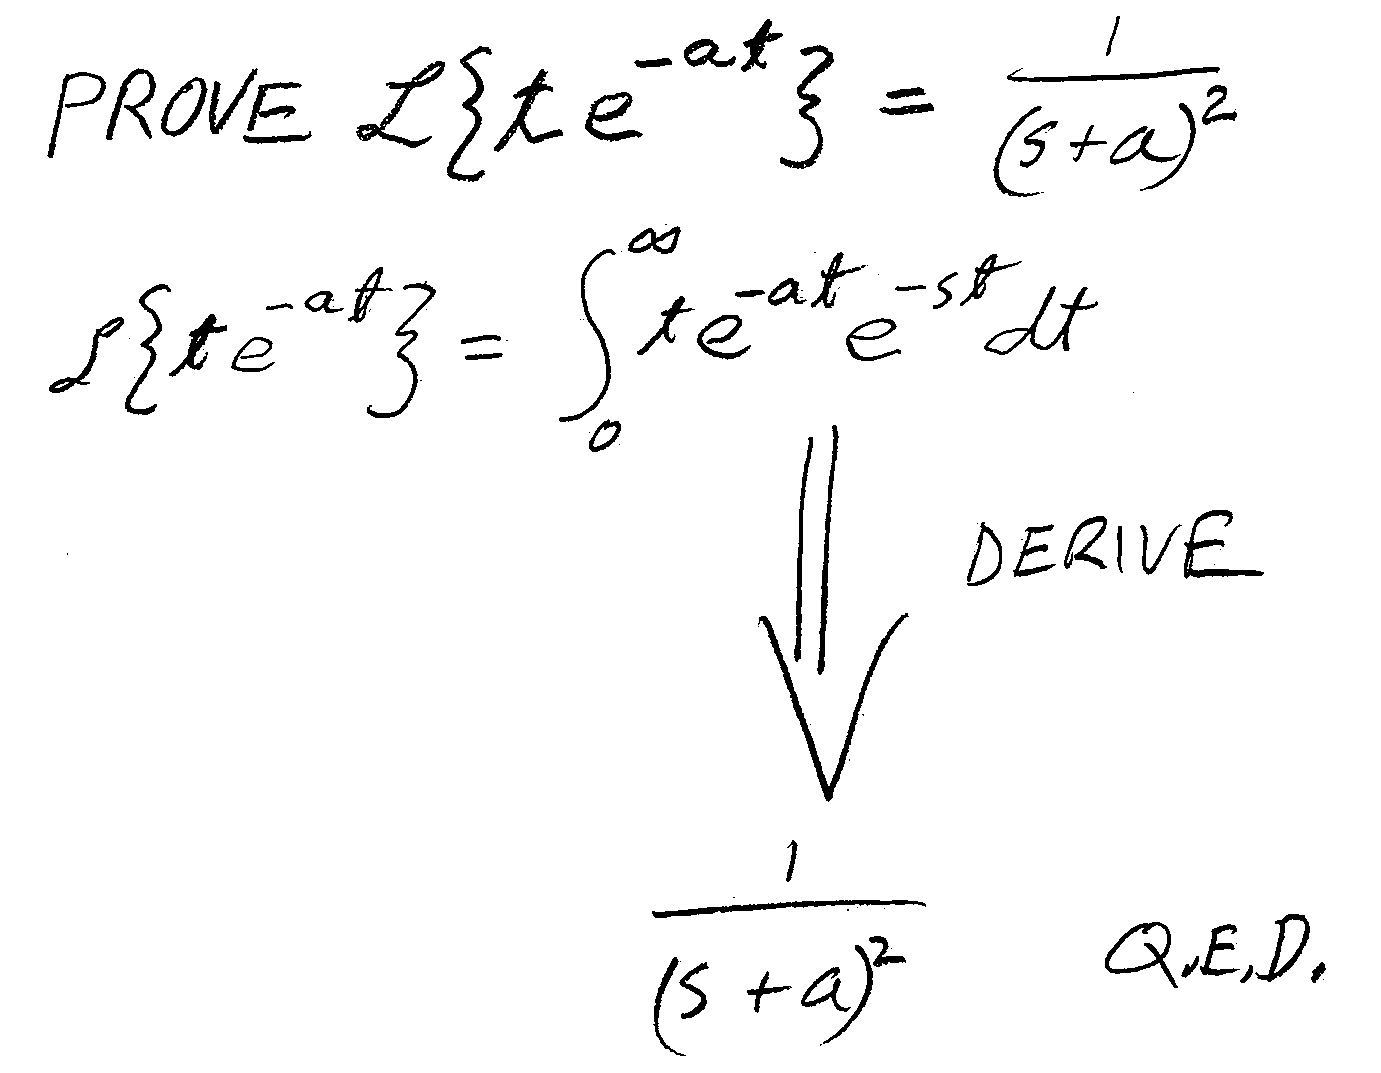 PROVE ℒ{te^{-at}} = 1/(s+a)^2
ℒ{te^{-at}} = ∫_0^∞ te^{-at} e^{-st} dt
DERIVE
1/(s+a)^2 Q.E.D.